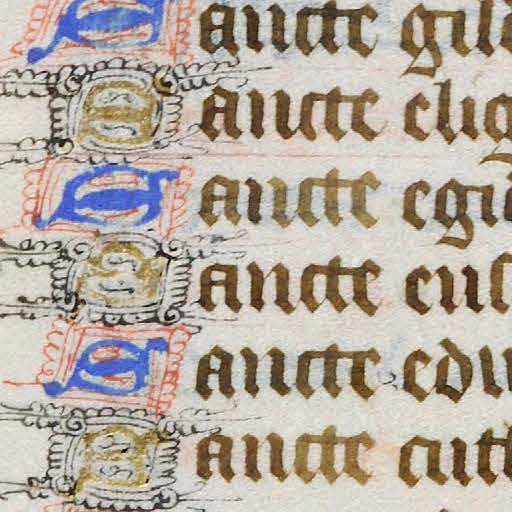 Sancte gil
Sancte elig
Sancte egi
Sancte eus
Sancte edu
Sancte cut